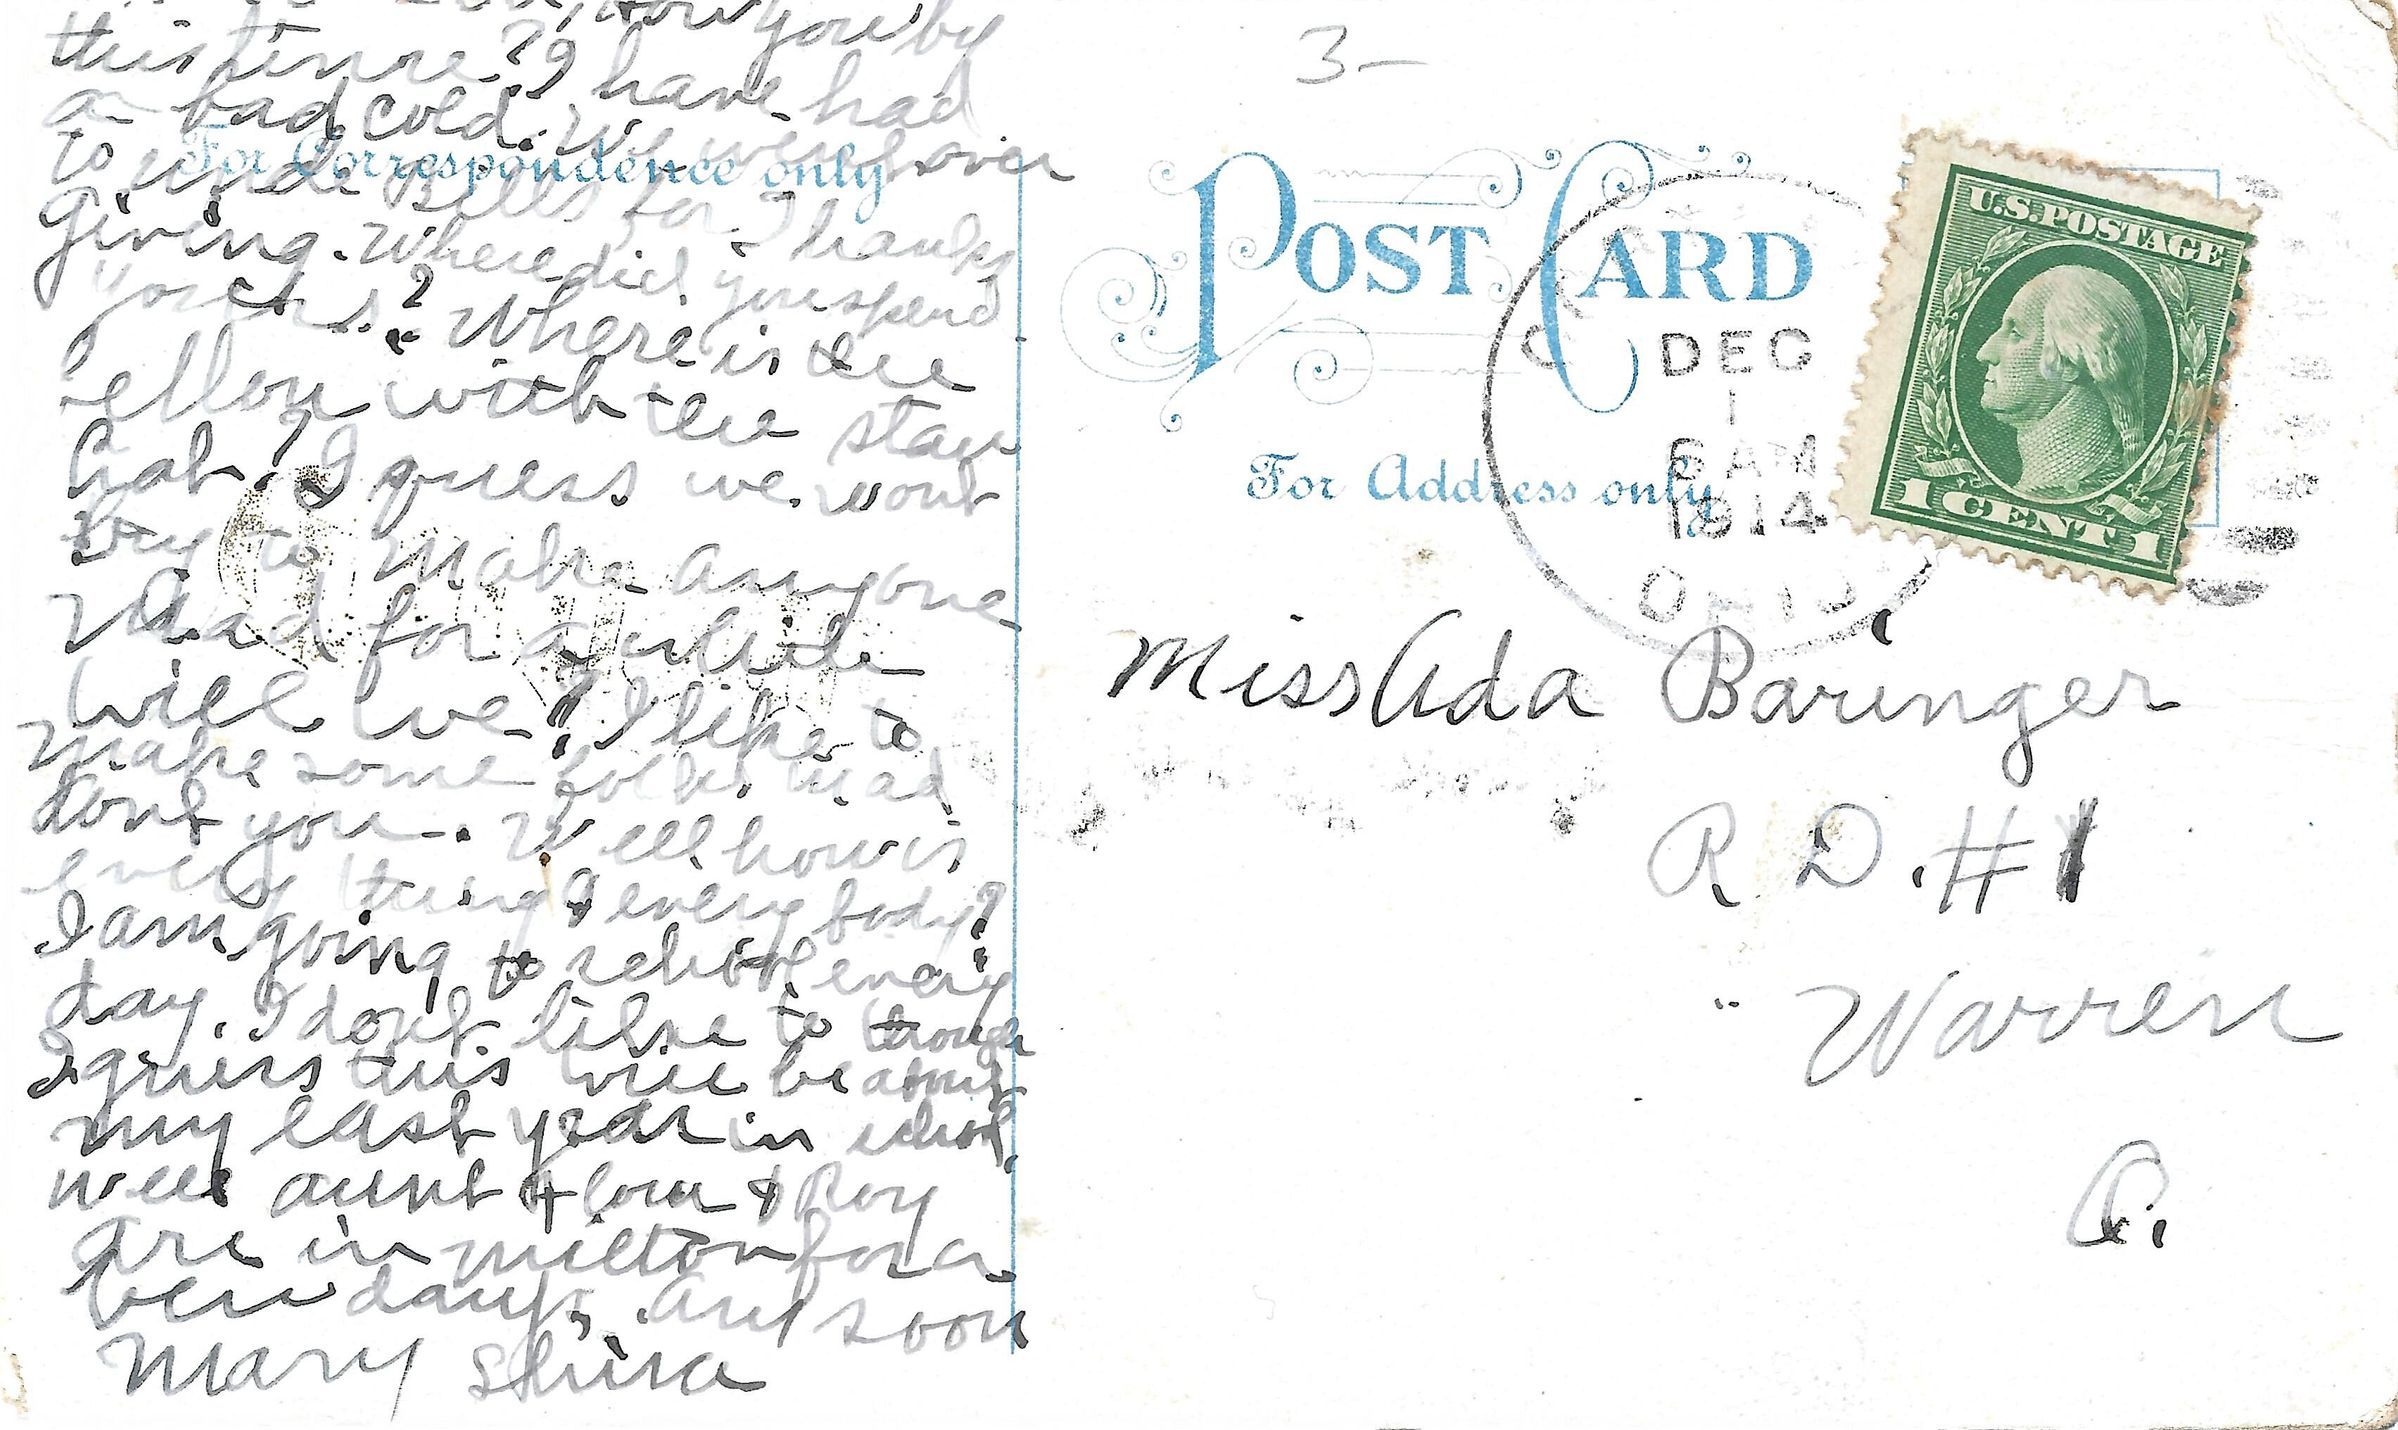 how you by
this time? I have had
a bad cold. We were over
to Uncle Bills for Thanks
Giving. Where did you spend
yours? Where is the
fellow with the straw
hat? I guess we wont
try to make anyone
mad for a while
will we? I like to
make some folks mad
dont you. Well how is
every thing & every body?
I am going to school every
day. I dont like to though
I guess this will be about
my last year in school.
well aunt Flora & Roy
are in milton for a
few days. Ans soon
Mary Shira
For Correspondence only
3-
POST CARD
For Address only
DEC
1
AM
1914
OHIO
U.S. POSTAGE
1 CENT 1
Miss Ada Baringer
R D. # 1
Warren
O.